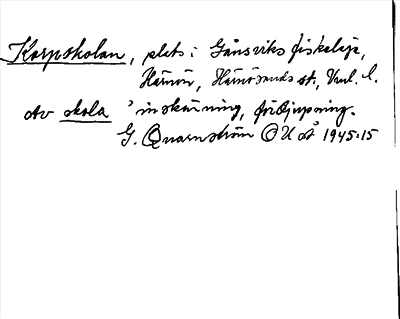 Korpskolan, plats i Gånsviks fiskeläge,
Hämön, Härnösands st., Vnl. l.
Av skola 'inskärning, fördjupning.
G. Quarnström OUÅ 1945:15